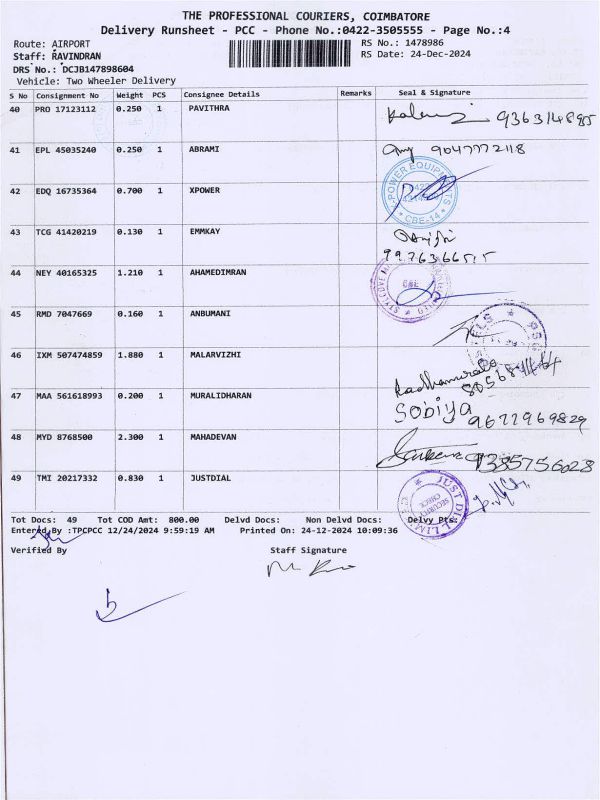 THE PROFESSIONAL COURIERS, COIMBATORE
Delivery Runsheet - PCC - Phone No.:0422-3505555 - Page No.:4
Route: AIRPORT RS No.: 1478986
Staff: RAVINDRAN RS Date: 24-Dec-2024
DRS No.: DCJB147898604
Vehicle: Two Wheeler Delivery
S No Consignment No Weight PCS Consignee Details Remarks Seal & Signature
40 PRO 17123112 0.250 1 PAVITHRA 936314895
41 EPL 45035240 0.250 1 ABRAMI 9047772118
42 EDQ 16735364 0.700 1 XPOWER POWER EQUIPMENTS CBE-14
43 TCG 41420219 0.130 1 EMMKAY
9976366515
44 NEY 40165325 1.210 1 AHAMEDIMRAN CBE
45 RMD 7047669 0.160 1 ANBUMANI
46 IXM 507474859 1.880 1 MALARVIZHI
47 MAA 561618993 0.200 1 MURALIDHARAN Sobiya 9677969829
48 MYD 8768500 2.300 1 MAHADEVAN 9385756028
49 TMI 20217332 0.830 1 JUSTDIAL JUST DIAL LIMITED SECURITY CHECK
Tot Docs: 49 Tot COD Amt: 800.00 Delvd Docs: Non Delvd Docs: Delvy Pts:
Entered By :TPCPCC 12/24/2024 9:59:19 AM Printed On: 24-12-2024 10:09:36
Verified By Staff Signature